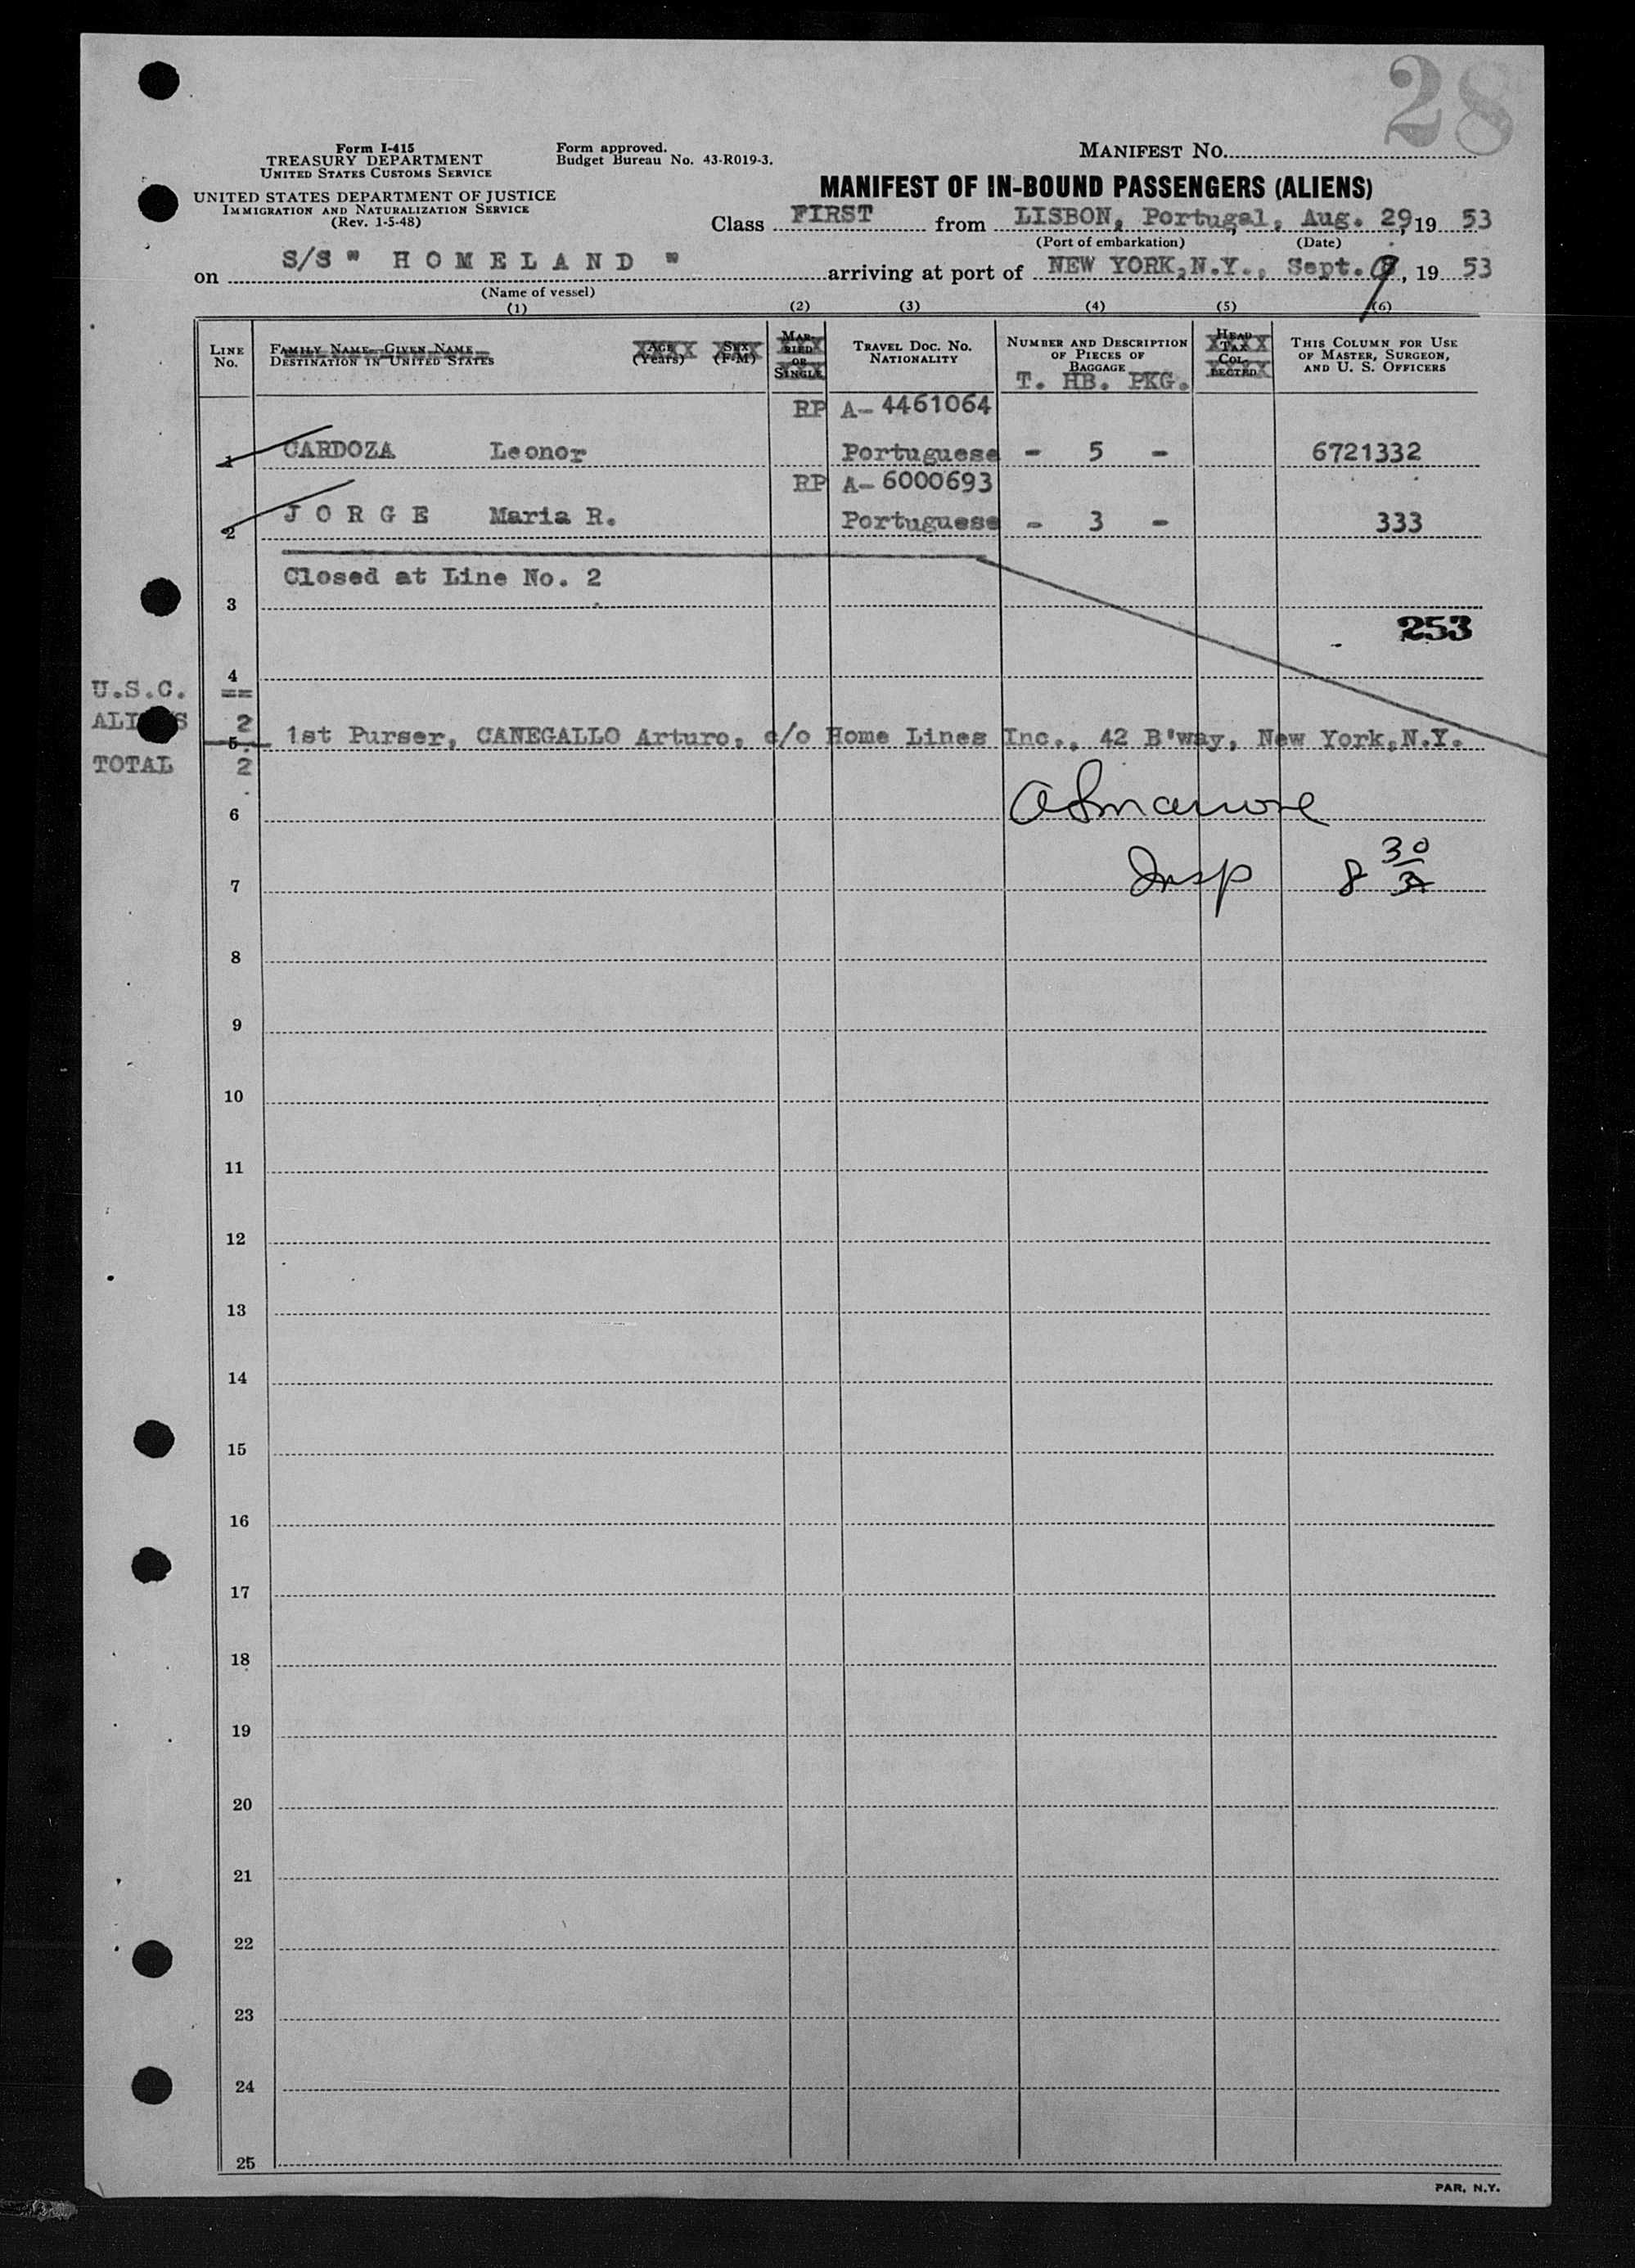 28
Form I-415
TREASURY DEPARTMENT
UNITED STATES CUSTOMS SERVICE
UNITED STATES DEPARTMENT OF JUSTICE
IMMIGRATION AND NATURALIZATION SERVICE
(Rev. 1-5-48)
Form approved.
Budget Bureau No. 43-R019-3.
MANIFEST NO.
MANIFEST OF IN-BOUND PASSENGERS (ALIENS)
Class FIRST from LISBON, Portugal, Aug. 29, 19 53
(Port of embarkation) (Date)
on S/S " H O M E L A N D " arriving at port of NEW YORK,N.Y., Sept. 9, 19 53
(Name of vessel)
(1) (2) (3) (4) (5) (6)
LINE No.
FAMILY NAME—GIVEN NAME
DESTINATION IN UNITED STATES
AGE (Years)
SEX (F-M)
MARRIED OR SINGLE
TRAVEL DOC. NO.
NATIONALITY
NUMBER AND DESCRIPTION
OF PIECES OF
BAGGAGE
T. HB. PKG.
HEAD TAX COLLECTED
THIS COLUMN FOR USE
OF MASTER, SURGEON,
AND U. S. OFFICERS
RP A- 4461064
1 CARDOZA Leonor Portuguese - 5 - 6721332
RP A- 6000693
2 J O R G E Maria R. Portuguese - 3 - 333
Closed at Line No. 2
3
253
4
U.S.C. ==
ALIENS 2
5 1st Purser, CANEGALLO Arturo, c/o Home Lines Inc., 42 B'way, New York,N.Y.
TOTAL 2
6
7 Insp 8 30/A
8
9
10
11
12
13
14
15
16
17
18
19
20
21
22
23
24
25
PAR, N.Y.